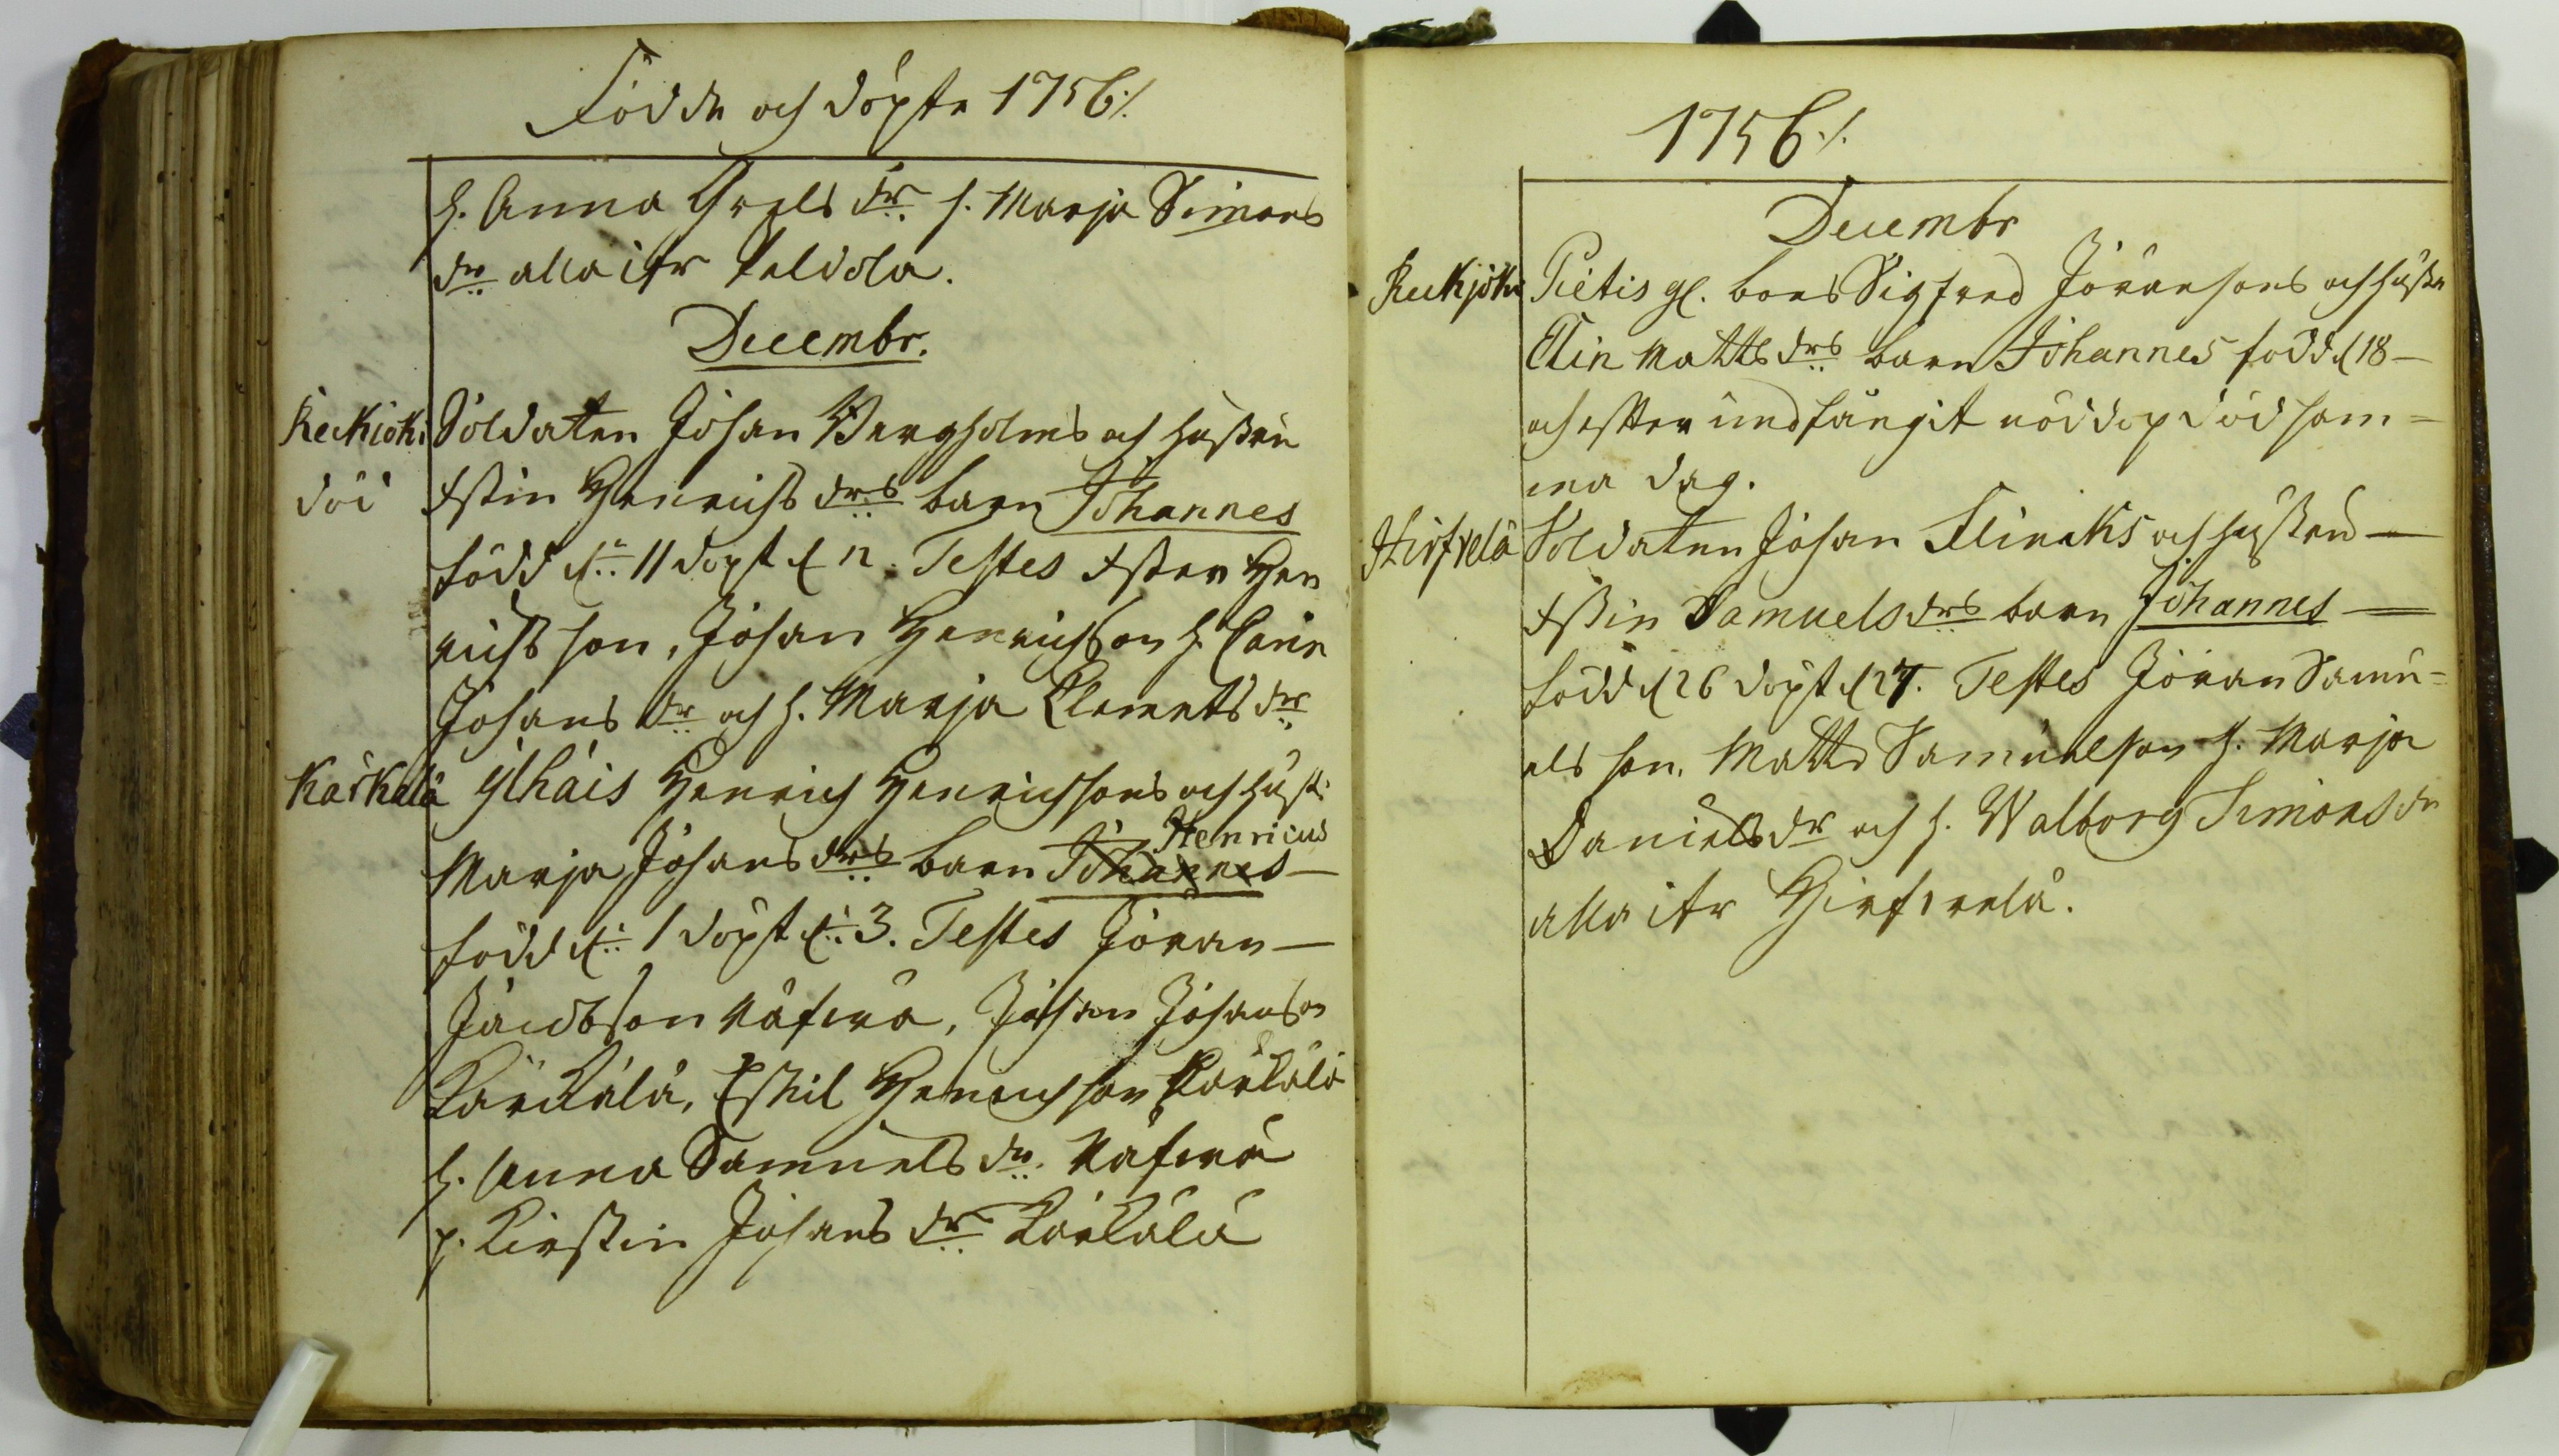 Födde och döpte 1756 ./.
h. Anna Grels dr. h. Marja Simons
dr. alla ifr Peldola.
Decembr.
Keikiöki Soldaten Johan Bergholms och hustru
död Kstin Henrichs drs barn Johannes
född d. 11 döpt d 12. Testes Ester Hen
richsson, Johan Henrichsson h. Carin
Johans dr och h. Marja Clemets dr
Kärkälä Ylhäis Henrich Henrichsons och hust:
Marja Johans drs barn Johannes Henricus
född d: 1 döpt d: 3. Testes Jöran
Jacobson Näferä, Johan Johanson
Kärkälä, Eskil Henrichson Kärkälä
h. Anna Samuels dr. Näferä
p. Kirstin Johans dr Kärkälä
1756 ./.
Decembr
Keikjöki Pietis gl. bons Sigfred Jöransons och hustr
Elin Matts drs barn Johannes född d 18
och efter undfångit nöddop död sam=
ma dag.
Hirfvelä Soldaten Johan Flincks och hustru
Kstin Samuels drs barn Johannes
född d 26 döpt d 27. Testes Jöran Samu=
els son. Matts Samuelson h. Marja
Daniels dr och h. Walborg Simons dr
alla ifr Hirfvelä.